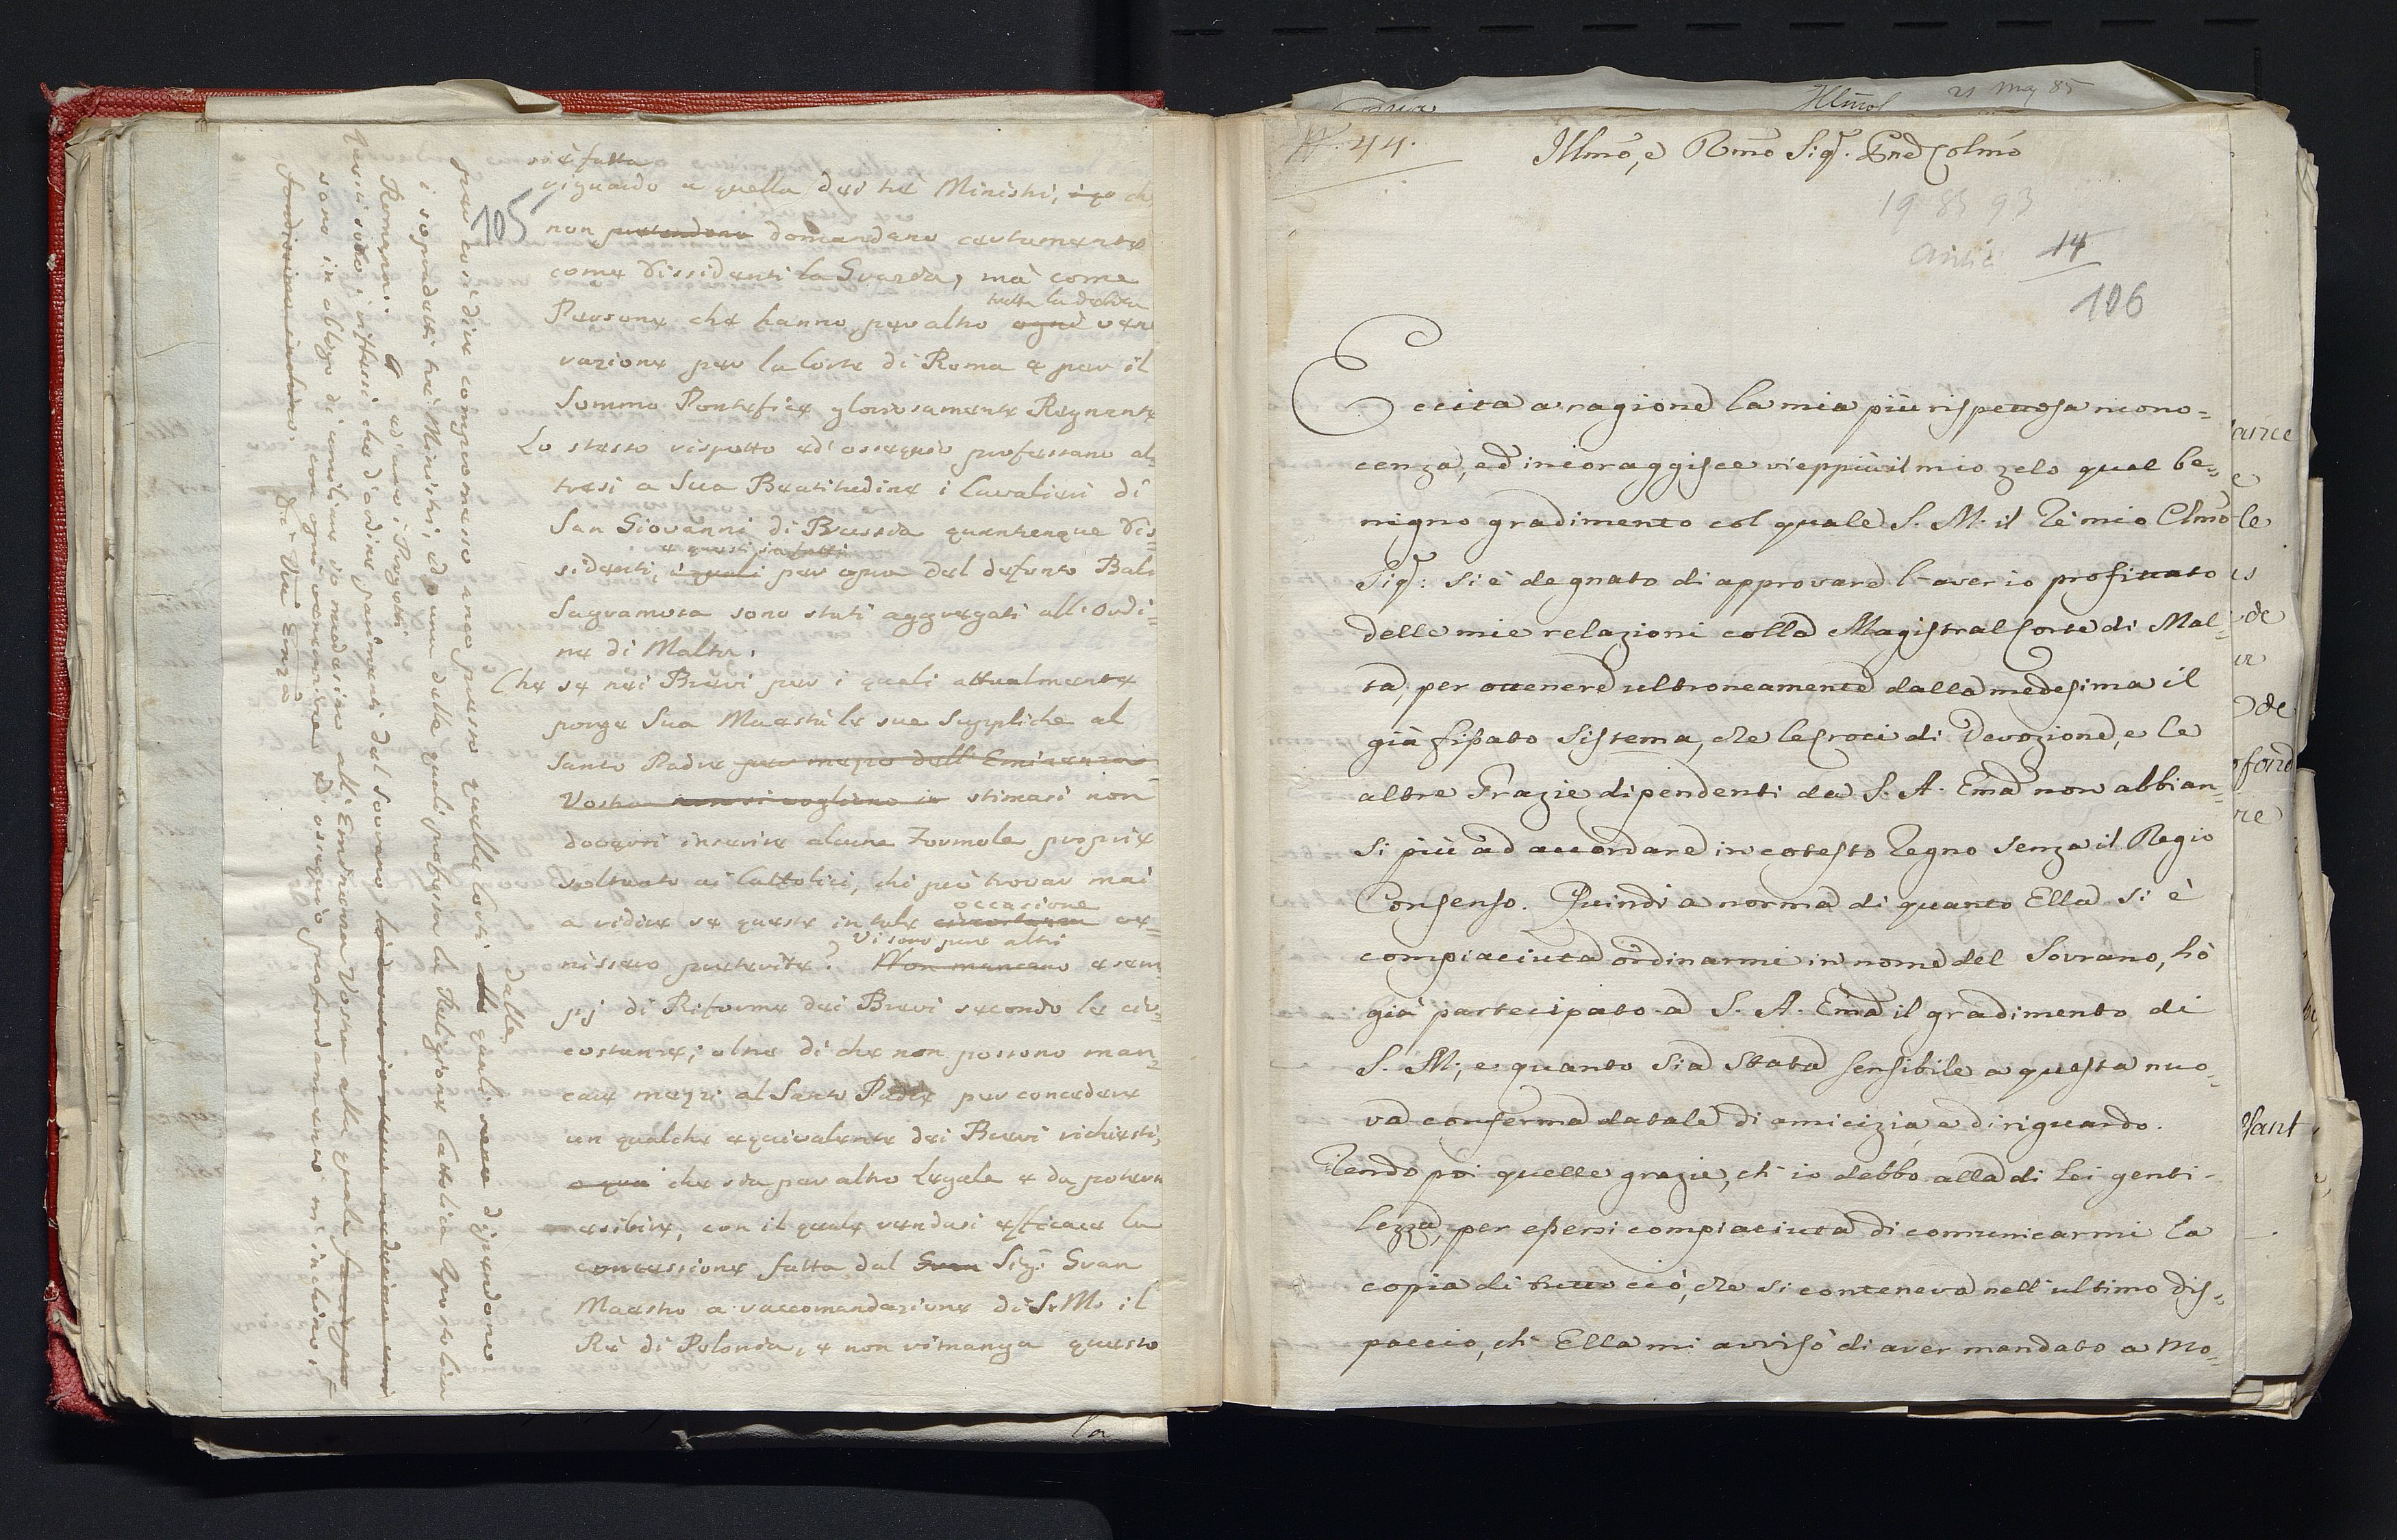 105
si è fatta
riguardo a quella dei tré Ministri, che
non pretendono domandano certamente
come Dissidenti la Grazia, mà come
tutta la debita
Persone che hanno per altro ogni vene
razione per la Corte di Roma e per il
Sommo Pontefice gloriosamente Regnante
Lo stesso rispetto ed' ossequio professano al=
tresì a Sua Beatitudine i Cavalieri di
San Giovanni di Prussia quantunque Dis=
e questi infatti
sidenti, i quali per opra del defunto Bali
Sagramosa sono stati aggregati all' Ordi=
ne di Malta.
Che se nei Brevi per i quali attualmente
porge Sua Maestà le sue Suppliche al
Santo Padre per mezzo dell' Eminenza
Vostra non si vogliono in stimasi non
doversi inserire alcune Formole proprie
soltanto ai Cattolici, chi può trovar mai
occasione
a ridire se queste in tale circostanza ve=
Vi sono pure altri
nissero preterite? Non mancano esem
pj di Riforme dei Brevi secondo le cir=
costanze; oltre di che non possono man=
care mezzi al Santo Padre per concedere
un qualche equivalente dei Brevi richiesti,
che sia per altro legale e da potersi
esibire, con il quale rendasi efficace la
concessione fatta dal Gran Sigr Gran
Maestro a raccomandazione di S. M. il
Rè di Polonia, e non rimanga questo
per così dire compromesso anco presso quelle Corti
dalle
quali dipendono
i sopradetti tré Ministri, ed' una delle quali professa la Religione Cattolica Apostolica
Romana.
Eccoli sotto i riflessi che d'ordine
del Sovrano
sono in obbligo di umiliare io medesimo all' Eminenza Vostra alla quale
con ogni venerazione e d' ossequio profondamente m' inchino.
Di Vra Emza
N. 44.
Illmo, e Rmo Sigr. Pne Colmo
19 85 93
14
106
Eccita a ragione la mia più rispettosa ricono=
cenza, ed incoraggisce vieppiù il mio zelo quel be=
nigno gradimento col quale S. M. il Ré mio Clmo
Sigr: si è degnato di approvare l'aver io profittato
delle mie relazioni colla Magistral Corte di Mal=
ta, per ottenere ultroneamente dalla medesima il
già fissato Sistema, che le Croci di Devozione, e le
altre Grazie dipendenti da S. A. Ema non abbian=
si più ad accordare in cotesto Regno senza il Regio
Consenso. Quindi a norma di quanto Ella si è
compiaciuta ordinarmi in nome del Sovrano, hò
già partecipato a S. A. Ema il gradimento di
S. M., e quanto sia stata sensibile a questa nuo=
va conferma da tale di amicizia, e di riguardo.
Rendo poi quelle grazie, ch' io debbo alla di Lei genti=
lezza, per essersi compiaciuta di comunicarmi la
copia di tutto ciò, che si conteneva nell' ultimo dis=
paccio, ch' Ella mi avvisò di aver mandato a Mo=
21 Maj 85